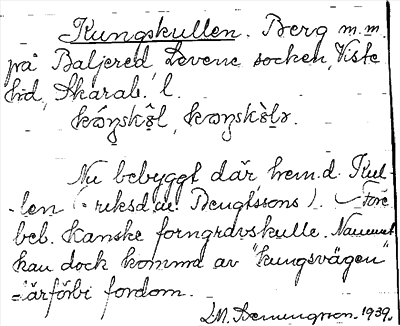 Kungskullen. Berg m.m.
på Baljered, Levene socken, Viste
hd, Skarab. l.
Nu bebyggt där hem.d. Kul-
-len (riksd.m. Bengtssons). Före
beb. kanske forngravskulle. Namnet
kan dock komma av "kungsvägen"
därförbi fordom.
1939.